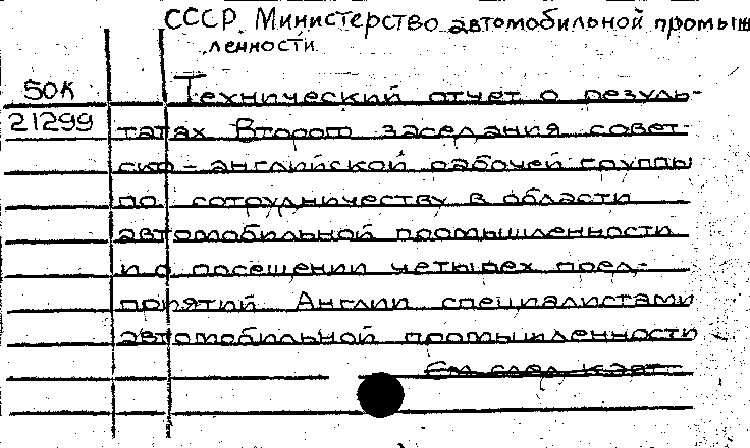 СССР. Министерство автомобильной промыш
ленности.
50К Технический отчет о резуль-
21299 татах Второго заседания совет-
ско-английской рабочей группы
по сотрудничеству в области
автомобильной промышленности
и о посещении четырех пред-
приятий Англии специалистами
автомобильной промышленности
См след карт